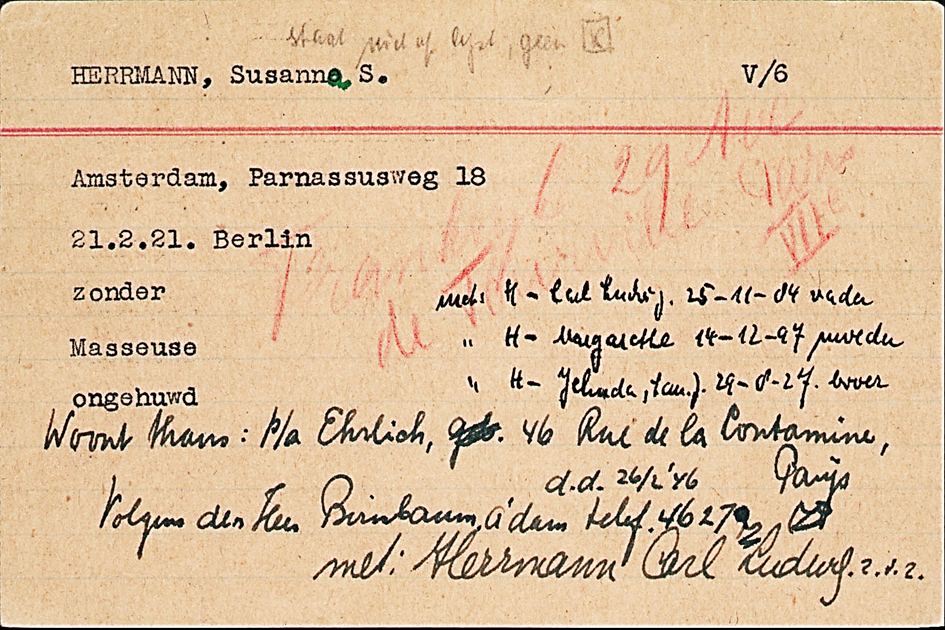 staat niet op lijst, geen K
HERRMANN, Susanne S. V/6
29 Ave
de Paris
VIIe
Amsterdam, Parnassusweg 18
21.2.21. Berlin
zonder
met: H- Carl Ludwig. 25-11-84 vader
Masseuse
" H- Margarethe 14-12-97 moeder
ongehuwd
" H- Jehuda, 29-8-27. broer
Woont thans: p/a Ehrlich, 46 Rue de la Contamine,
Parijs
d.d. 26/2 '46
Volgens den Heer Birnbaum, A'dam telef. 46279
met: Herrmann Carl Ludwig. z.o.z.